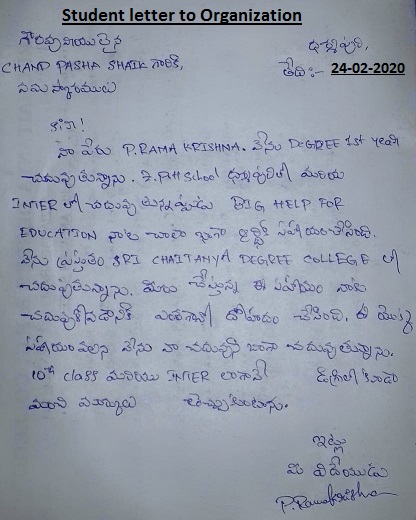 Student letter to Organization
గౌరవనీయులైన
ధర్మపురి,
CHAND PASHA SHAIK గారికి,
తేది:- 24-02-2020
నమస్కారములు
నా పేరు P.RAMA KRISHNA. నేను DEGREE 1st year
చదువుతున్నాను. Z.P.H School ధర్మపురిలో మరియు
INTER లో చదువుతున్నప్పుడు BIG HELP FOR
EDUCATION నాకు చాలా బాగా ఆర్థిక సహాయం చేసింది.
నేను ప్రస్తుతం SRI CHAITANYA DEGREE COLLEGE లో
చదువుతున్నాను. మీరు చేస్తున్న ఈ సహాయం నాకు
చదువుకోవడానికి ఎంతగానో దోహదం చేసింది. ఈ యొక్క
సహాయం వలన నేను నా చదువుని బాగా చదువుతున్నాను.
10th class మరియు INTER లాగానే డిగ్రీలో కూడా
మంచి మార్కులు తెచ్చుకుంటాను.
ఇట్లు
మీ విధేయుడు
P.Ramakrishna